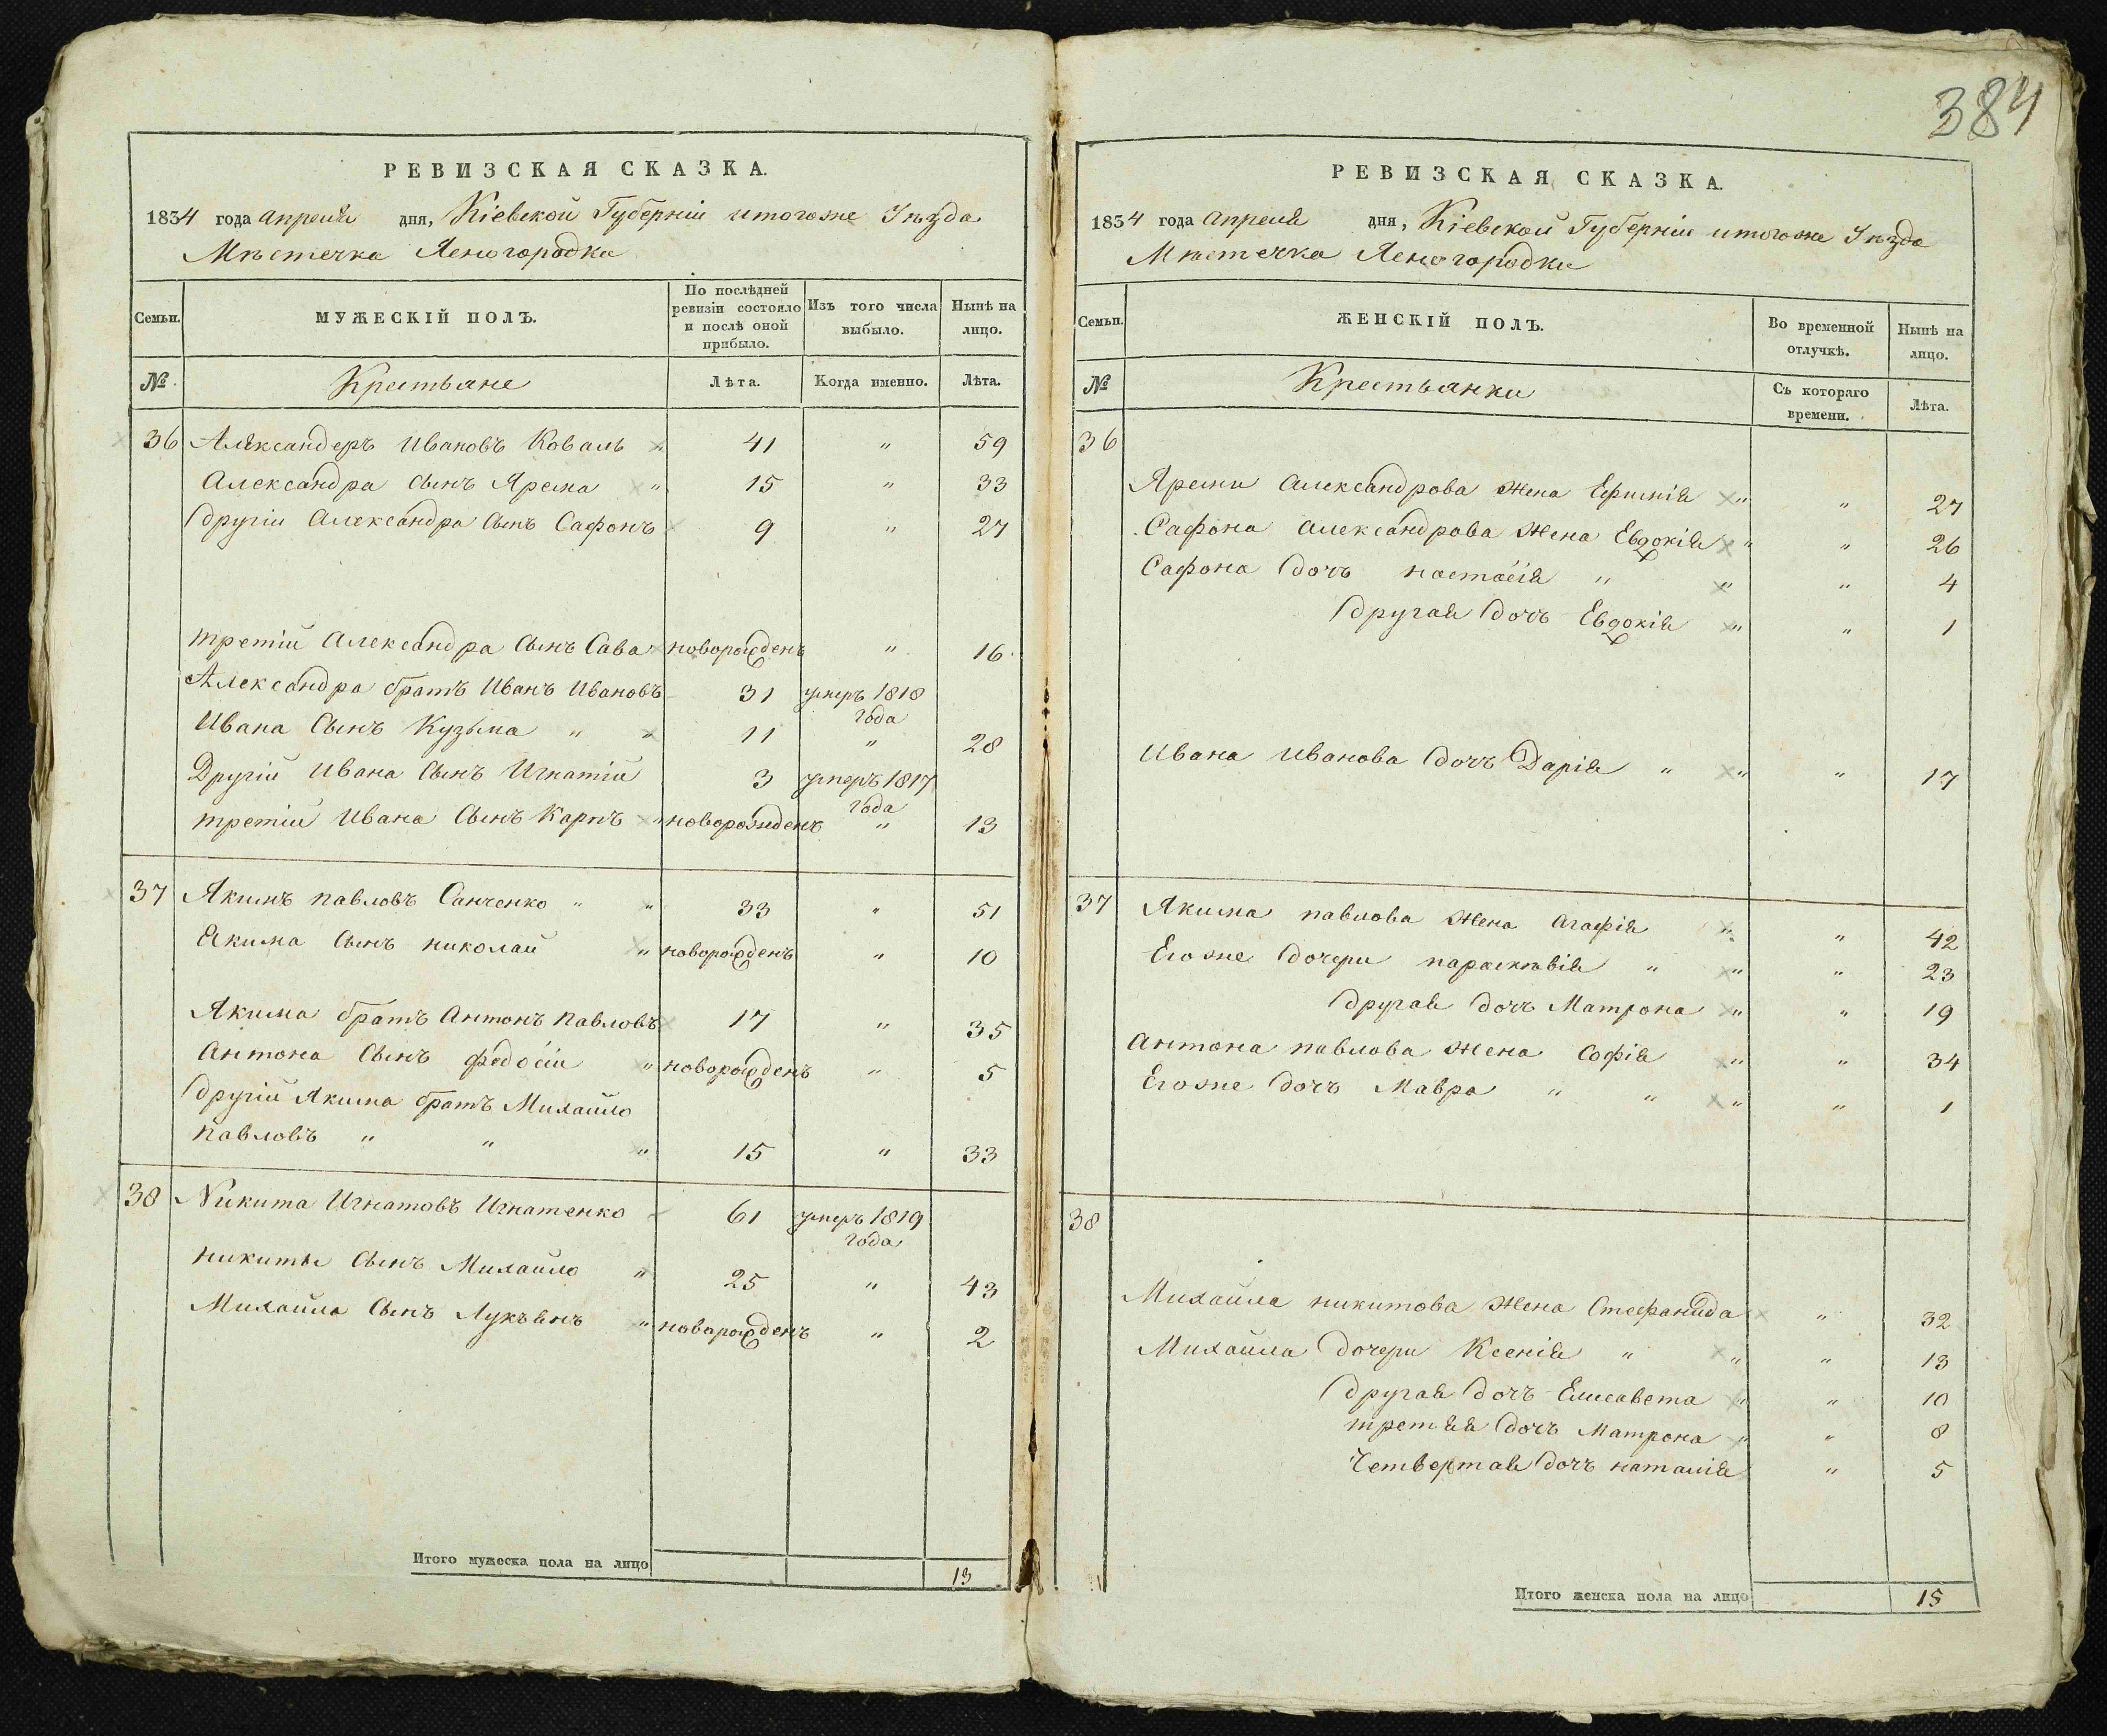 384
РЕВИЗСКАЯ СКАЗКА.
1834 года апреля дня, Кіевской Губерніи итогоже Уѣзда
Мѣстечка Ясногородки
Семьи. МУЖЕСКІЙ ПОЛЪ. По послѣдней ревизіи состояло и послѣ оной прибыло. Изъ того числа выбыло. Нынѣ на лицо.
№ Крестьяне Лѣта. Когда именно. Лѣта.
36 Александеръ Ивановъ Коваль „ 41 „ 59
Александра сынъ Ярема „ 15 „ 33
другіи Александра Сынъ Сафонъ 9 „ 27
третіи Александра Сынъ Сава новорожденъ „ 16
Александра братъ Иванъ Ивановъ 31 умеръ 1818 года
Ивана Сынъ Кузьма „ „ 11 „ 28
Другіи Ивана Сынъ Игнатіи 3 умеръ 1817 года
третіи Ивана Сынъ Карпъ „ новорожденъ „ 13
37 Якимъ павловъ Санченко „ „ 33 „ 51
Якима Сынъ николаи „ новорожденъ „ 10
Якима братъ Антонъ павловъ 17 „ 35
Антона Сынъ федосіи „ новорожденъ „ 5
другіи Якима братъ Михаило
павловъ „ „ „ 15 „ 33
38 Никита Игнатовъ Игнатенко 61 умеръ 1819 года
никиты Сынъ Михаило „ 25 „ 43
Михаила Сынъ Лукъянъ „ новорожденъ „ 2
Итого мужеска пола на лицо 13
РЕВИЗСКАЯ СКАЗКА.
1834 года апреля дня, Кіевской Губерніи итогоже Уѣзда
Мѣстечка Ясногородки
Семьи. ЖЕНСКІЙ ПОЛЪ. Во временной отлучкѣ. Нынѣ на лицо.
№ Крестьянки Съ котораго времени. Лѣта.
36
Яремы Александрова жена Ефимія „ „ 27
Сафона Александрова жена Евдокія „ „ 26
Сафона дочъ настасія „ „ „ 4
другая дочъ Евдокія „ „ 1
Ивана Иванова дочъ Дарія „ „ „ 17
37 Якима павлова жена Агафія „ „ 42
Егоже дочери параскѣвія „ „ „ 23
другая дочъ Матрона „ „ 19
Антона павлова жена Софія „ „ 34
Егоже дочъ Мавра „ „ „ „ 1
38
Михаила никитова жена Стефанида „ 32
Михаила дочери Ксенія „ „ „ 13
другая дочъ Елисавета „ „ 10
третяя дочъ Матрона „ „ 8
Четвертая дочъ наталія „ 5
Итого женска пола на лицо 15